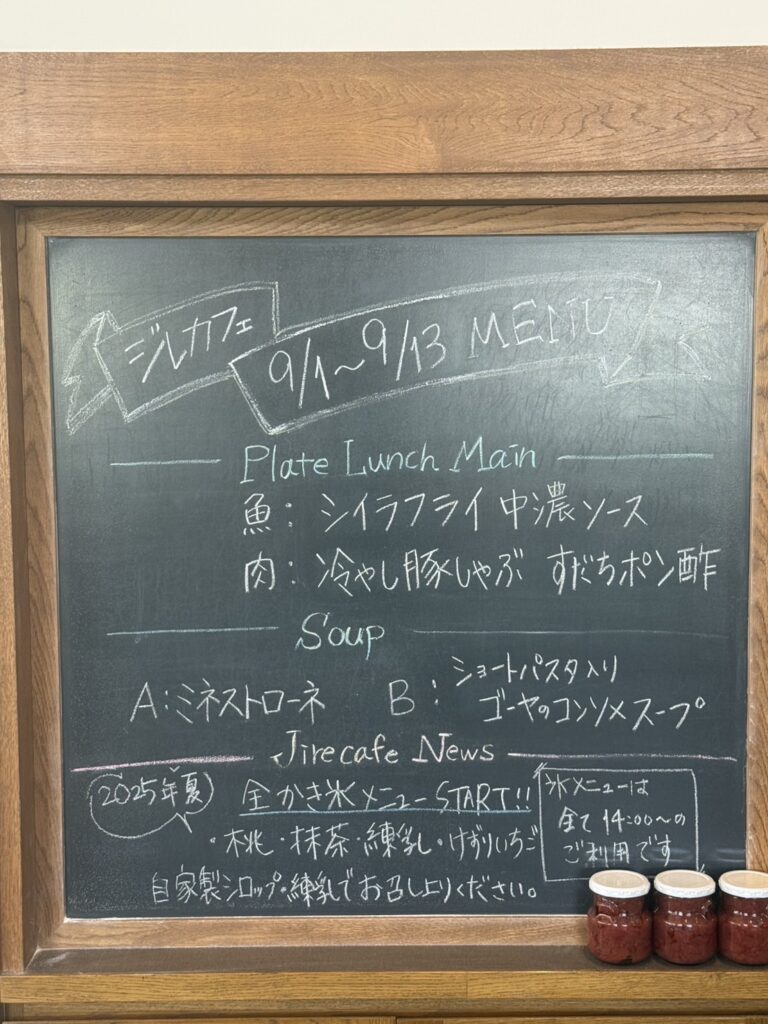 ジルカフェ
9/1〜9/13 MENU
Plate Lunch Main
魚：シイラフライ 中濃ソース
肉：冷やし豚しゃぶ すだちポン酢
Soup
A：ミネストローネ
B：ショートパスタ入り
ゴーヤのコンソメスープ
Jirecafe News
2025年夏
全かき氷メニューSTART!!
・桃・抹茶・練乳・けずりいちご
自家製シロップ・練乳でお召し上りください。
氷メニューは
全て14:00〜の
ご利用です